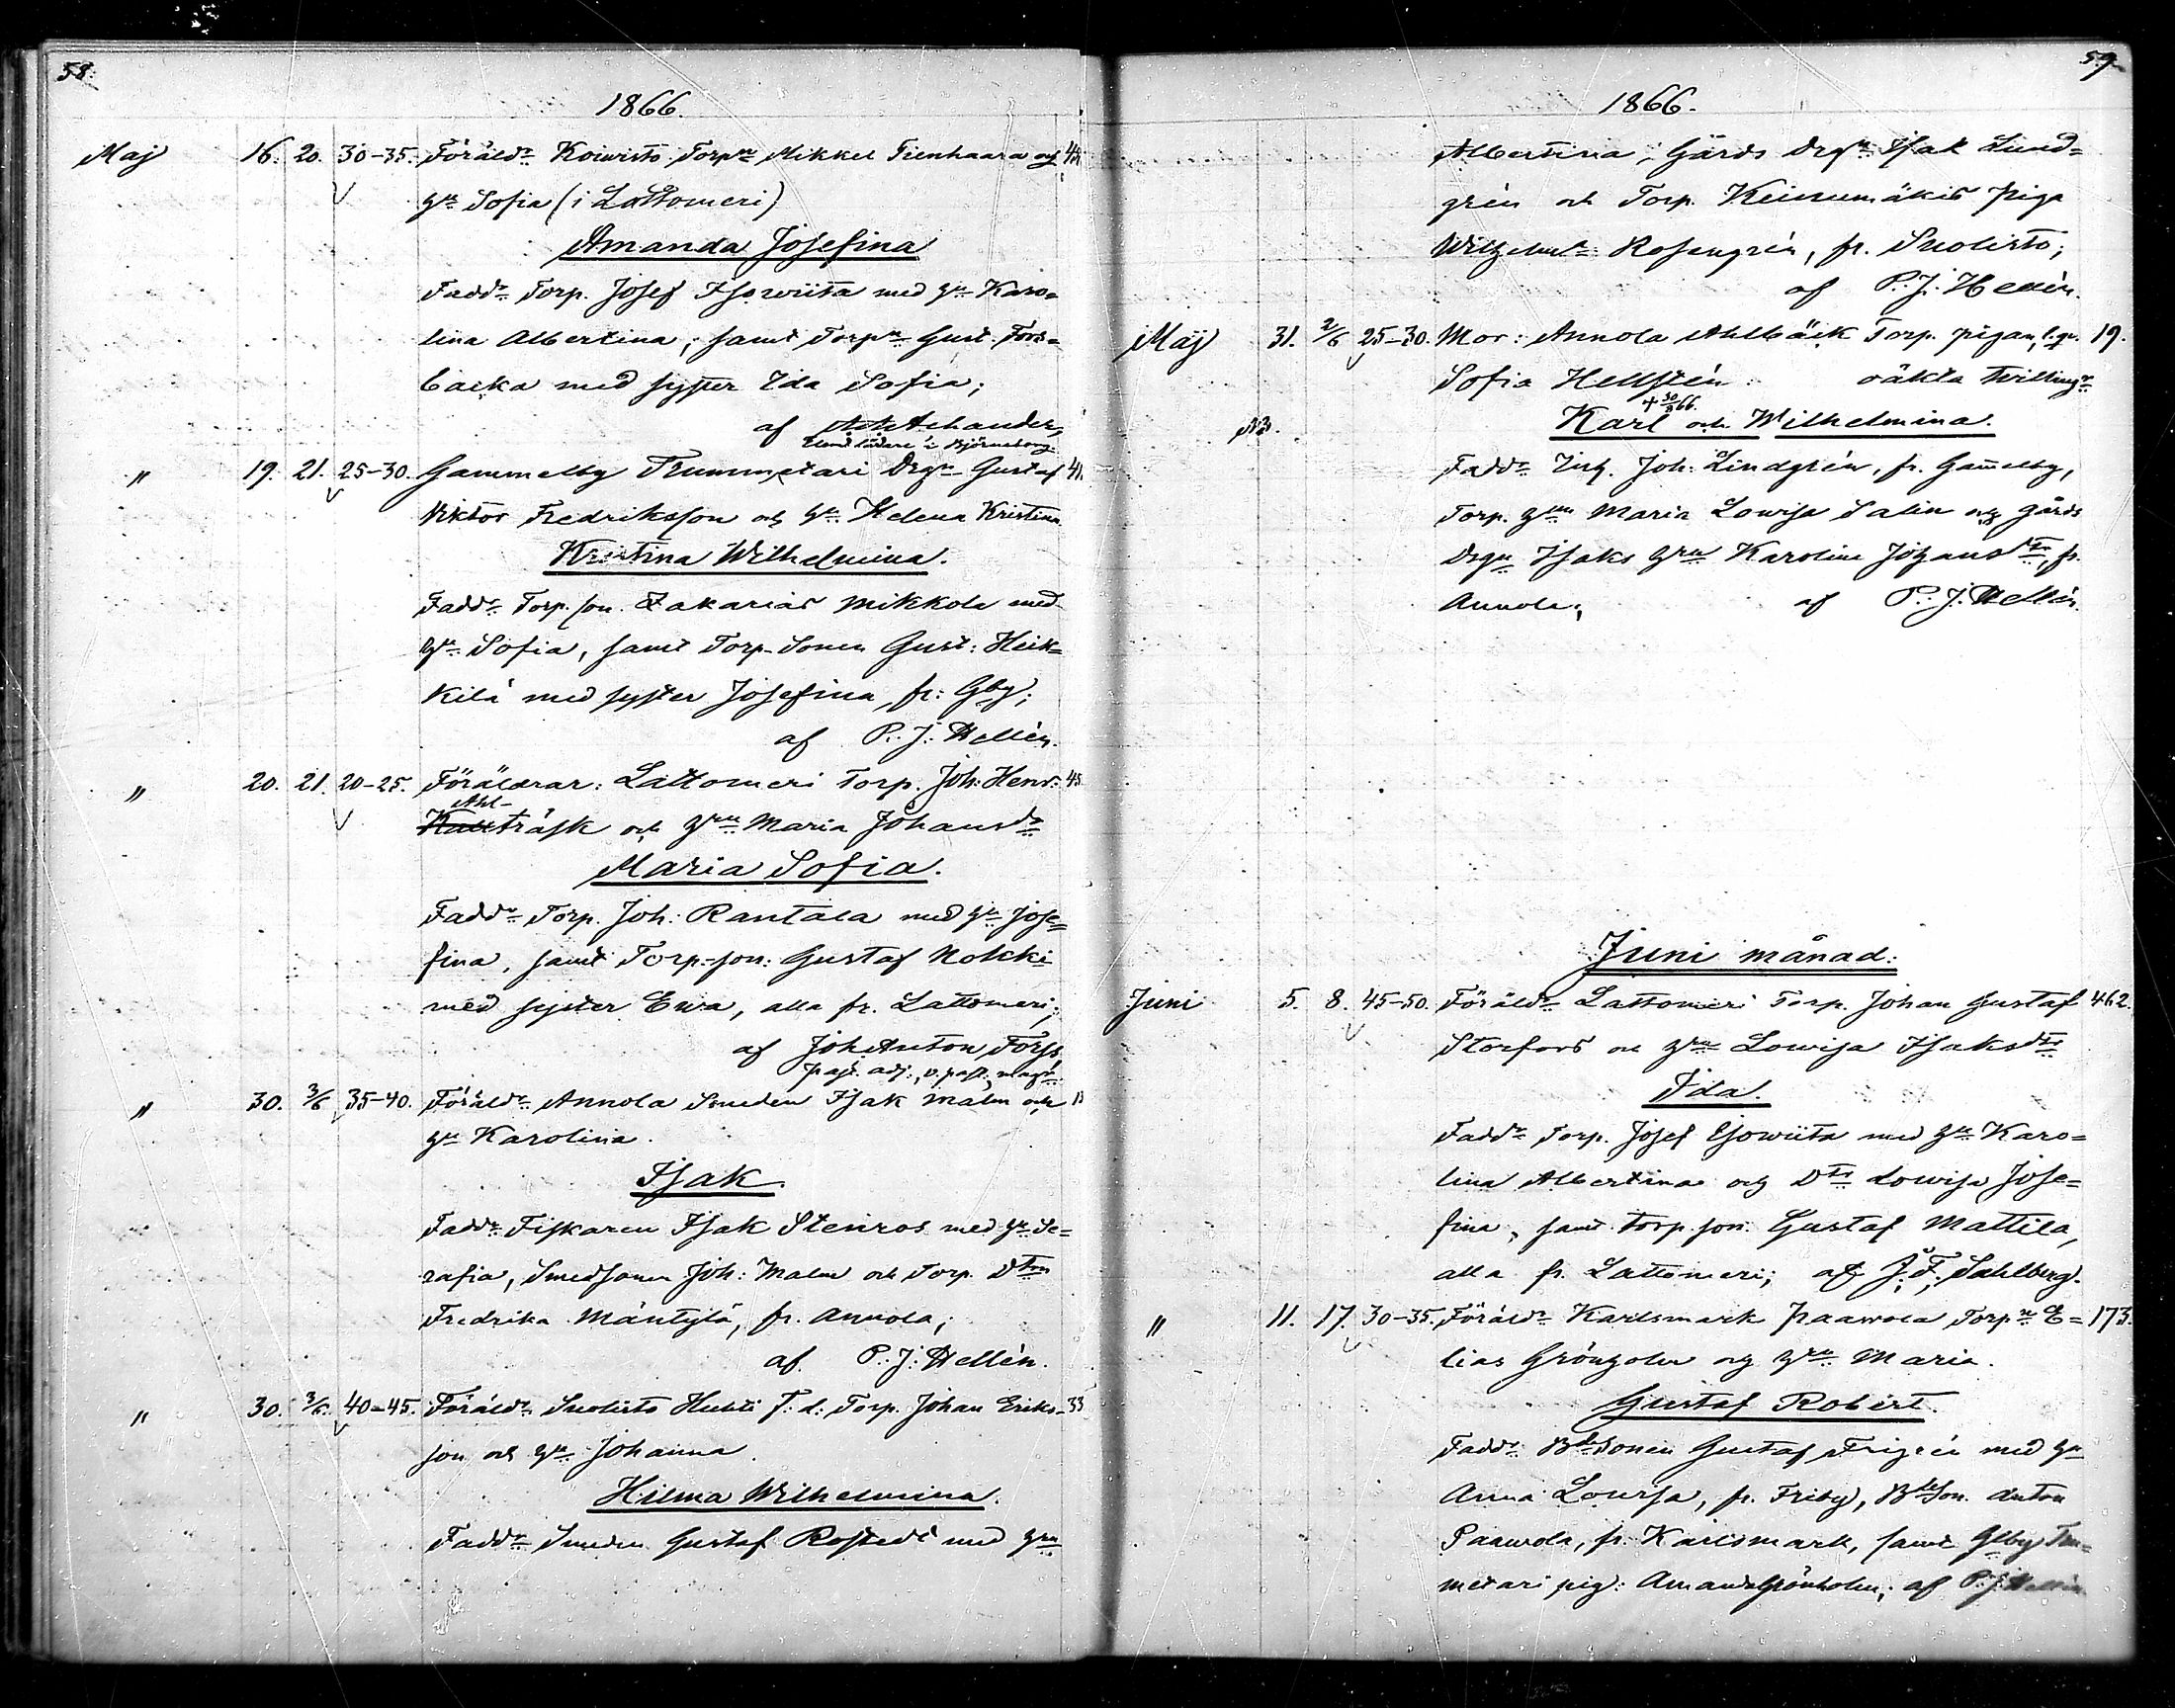 58.
1866.
Maj 16. 20. 30-35. Föräldr Koivisto Torpn Mikkel Tienhaara och
hu Sofia (i Lattomeri)
Amanda Josefina
Faddr Torp. Josef Isowiita med hu Karo=
lina Albertina, samt Torpn Gust. Fors=
backa med syster Ida Sofia;
af
i Björneborg
" 19. 21. 25-30. Gammelby Trummetari Drgn Gustaf 41.
Viktor Fredriksson och hu Helena Kristina
Kristina Wilhelmina.
Faddr Torp. son. Zakarias Mikkola med
hu Sofia, samt Torp-Sonen Gust: Heik=
kilä med syster Josefina, fr: Gby;
af P. J. Hellén.
" 20. 21. 20-25. Föräldrar: Lattomeri Torp. Joh: Henr: 45
Ahl-
träsk och hru Maria Johansdr
Maria Sofia.
Faddr Torp. Joh: Rantala med hu Jose=
fina, samt Torp-son: Gustaf Nokki
med syster Ewa, alla fr. Lattomeri;
af Joh Anton Forss,
past. adj., v. past., mag.
" 30. 3/6 35-40. Föräldr Annola Smeden Isak Malm och
hu Karolina.
Isak.
Faddr Fiskaren Isak Stenros med hu Se=
rafia, Smedsonen Joh: Malm och Torp. Dtren
Fredrika Mäntylä, fr. Annola;
af P. J. Hellén.
" 30. 3/6. 40-45. Föräldr Suolisto Huhti f. d. Torp. Johan Eriks- 33
son och hu Johanna.
Hilma Wilhelmina.
Faddr Smeden Gustaf Rostedt med hru
59
1866.
Albertina, Gårds Drgn Isak Lund=
grén och Torp. Keinumäkis piga
Wilhelma Rosengrén, fr. Suolisto;
af P. J. Hellén.
Maj 31. 2/6 25-30. Mor: Annola Ahlbäck Torp. pigan, 19.
Sofia Hellstén: oäkta tvillingr
+ 30/8 66.
Karl och Wilhelmina.
Faddr Joh: Lindgrén, fr. Gammelby,
Torp. hru Maria Lowisa Salin och gårds
Drgn Isaks hru Karolina Johansdtr, fr.
Annola; af P. J. Hellén.
Juni månad:
Juni 5. 8. 45-50. Föräldr Lattomeri Torp. Johan Gustaf 462.
Storfors och hru Lowisa Isaksdtr
Ida.
Faddr Torp. Josef Isowiita med hu Karo=
lina Albertina och Dtr Lowisa Jose=
fina, samt torp. son: Gustaf Mattila,
alla fr. Lattomeri; af J. F. Sahlberg.
" 11. 17. 30-35. Föräldr Karlsmark Paawola Torpn E= 173.
lias Grönholm och hru Maria.
Gustaf Robert.
Faddr: Bdesonen Gustaf Frigrén med hu
Anna Lowisa, fr. Friby, Bdeson. Anton
Paawola, fr. Karlsmark, samt Glby Trum=
metari pig: Amanda Grönholm; af P. J. Hellén